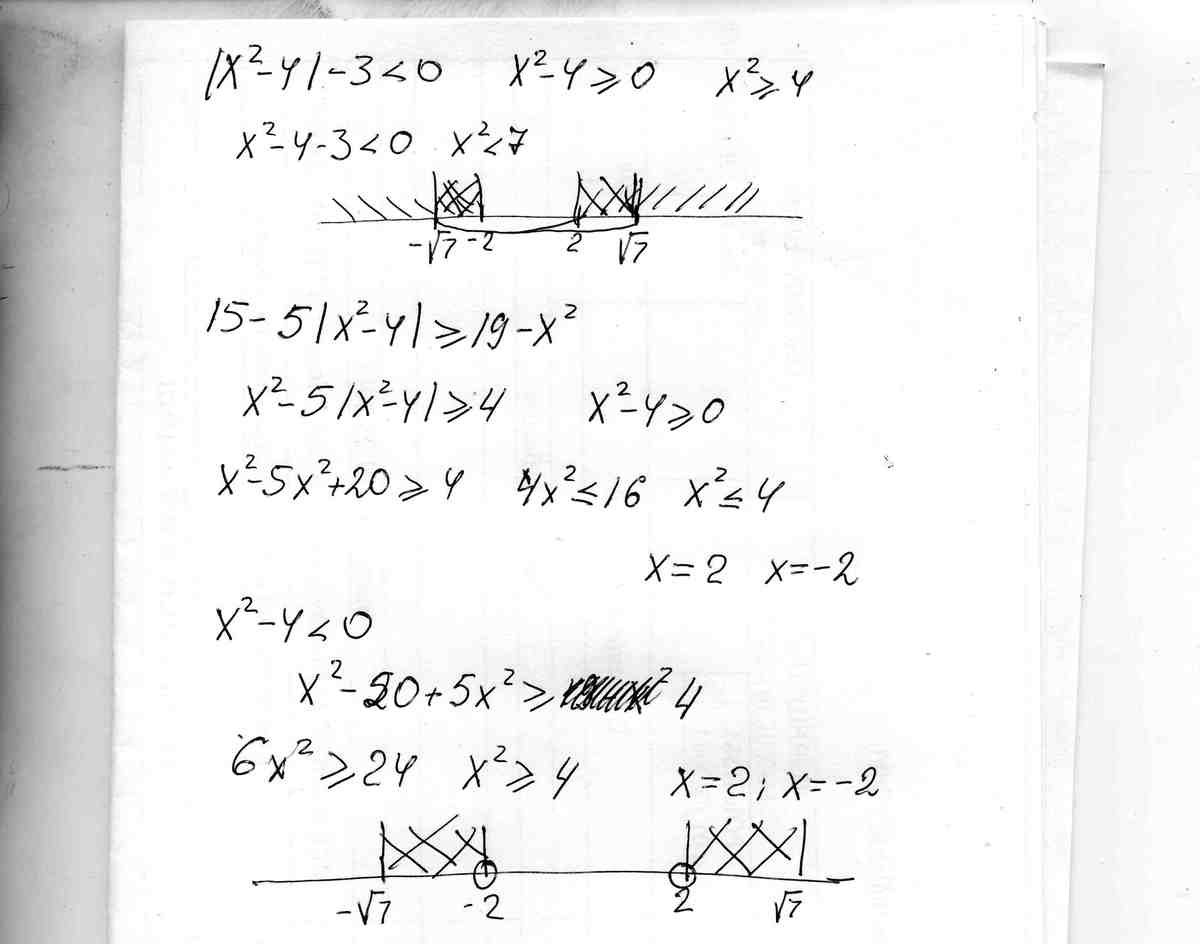 |x²-4|-3<0 x²-4⩾0 x²⩾4
x²-4-3<0 x²<7
-√7 -2 2 √7
15-5|x²-4|⩾19-x²
x²-5|x²-4|⩾4 x²-4⩾0
x²-5x²+20⩾4 4x²≤16 x²≤4
x=2 x=-2
x²-4<0
x²-20+5x²⩾ 4
6x²⩾24 x²⩾4 x=2; x=-2
-√7 -2 2 √7